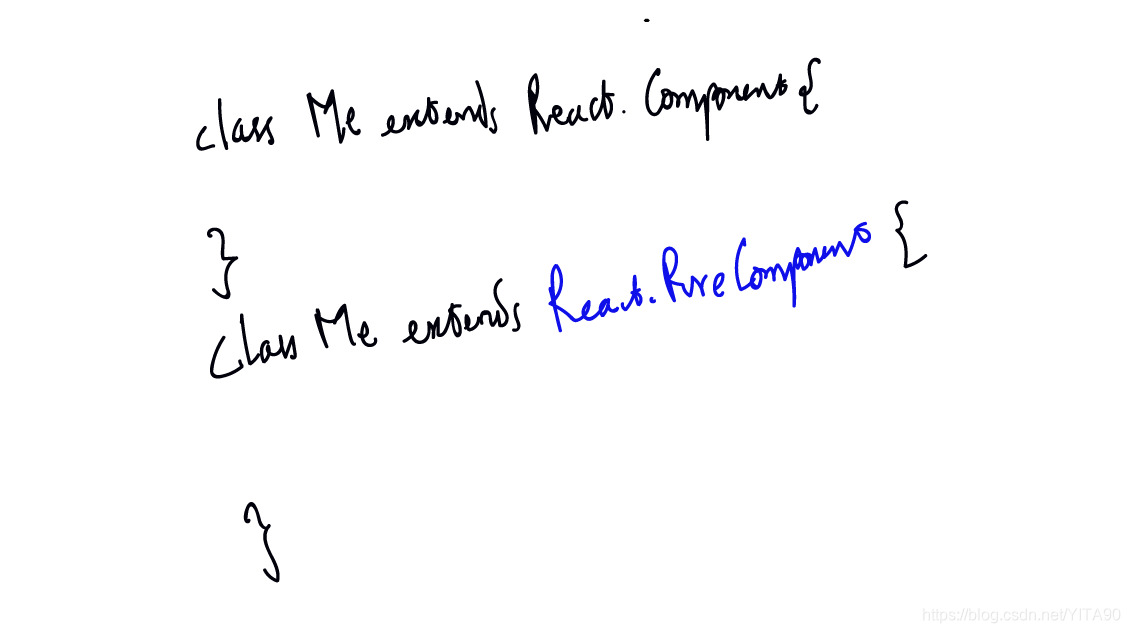 class Me extends React.Component{
}
class Me extends React.PureComponent {
}
https://blog.csdn.net/YITA90